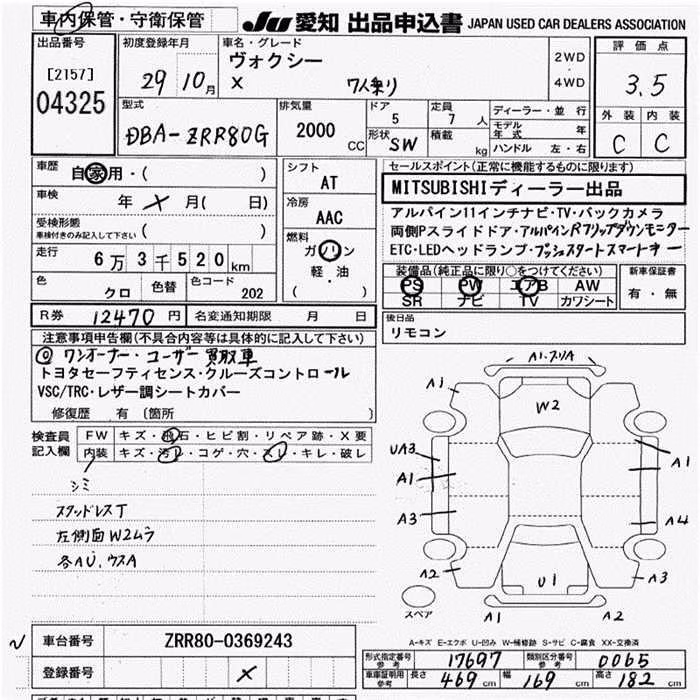 車内保管・守衛保管
JU 愛知 出品申込書 JAPAN USED CAR DEALERS ASSOCIATION
出品番号
[2157]
04325
初度登録年月
29年10月
車名・グレード
ヴォクシー
X 7人乗り
2WD
・
4WD
評価点
3.5
外装 内装
C C
型式
DBA-ZRR80G
排気量
2000 CC
ドア 5
定員 7人
形状 SW
積載 kg
ディーラー・並行
モデル年式 年
ハンドル 左・右
車歴 自家用・( )
車検 年 X 月( 日)
受検形態
車検付きのみ記入して下さい ( )
走行 6万3千520km
色 クロ 色替 色コード 202
シフト
AT
冷房
AAC
燃料
ガソリン
軽・油
( )
セールスポイント(正常に機能するものに限ります)
MITSUBISHIディーラー出品
アルパイン11インチナビ・TV・バックカメラ
両側Pスライドドア・アルパインRフリップダウンモニター
ETC・LEDヘッドランプ・プッシュスタートスマートキー
装備品(純正品に限り○をつけてください)
PS PW エアB AW
SR ナビ TV カワシート
新車保証書
有・無
R券 12470円 名変通知期限 月 日
後日品
リモコン
注意事項申告欄(不具合内容等は具体的に記入して下さい)
◎ワンオーナー・ユーザー買取車
トヨタセーフティセンス・クルーズコントロール
VSC/TRC・レザー調シートカバー
修復歴 有(箇所 )
検査員
記入欄
FW キズ・飛石・ヒビ割・リペア跡・X要
内装 キズ・汚レ・コゲ・穴・スレ・キレ・破レ
シミ
スタッドレスT
左側面W2ムラ
各AU、ウスA
A1・スリA
A1
W2
UA3
A1
A1
A3
A4
A2
U1
A3
スペア
A1
A2
A-キズ E-エクボ U-凹み W-補修跡 S-サビ C-腐食 XX-交換済
車台番号 ZRR80-0369243
登録番号 X
形式指定番号 参考 17697 類別区分番号 参考 0065
車庫証明用 参考 長さ 469cm 幅 169cm 高さ 182cm